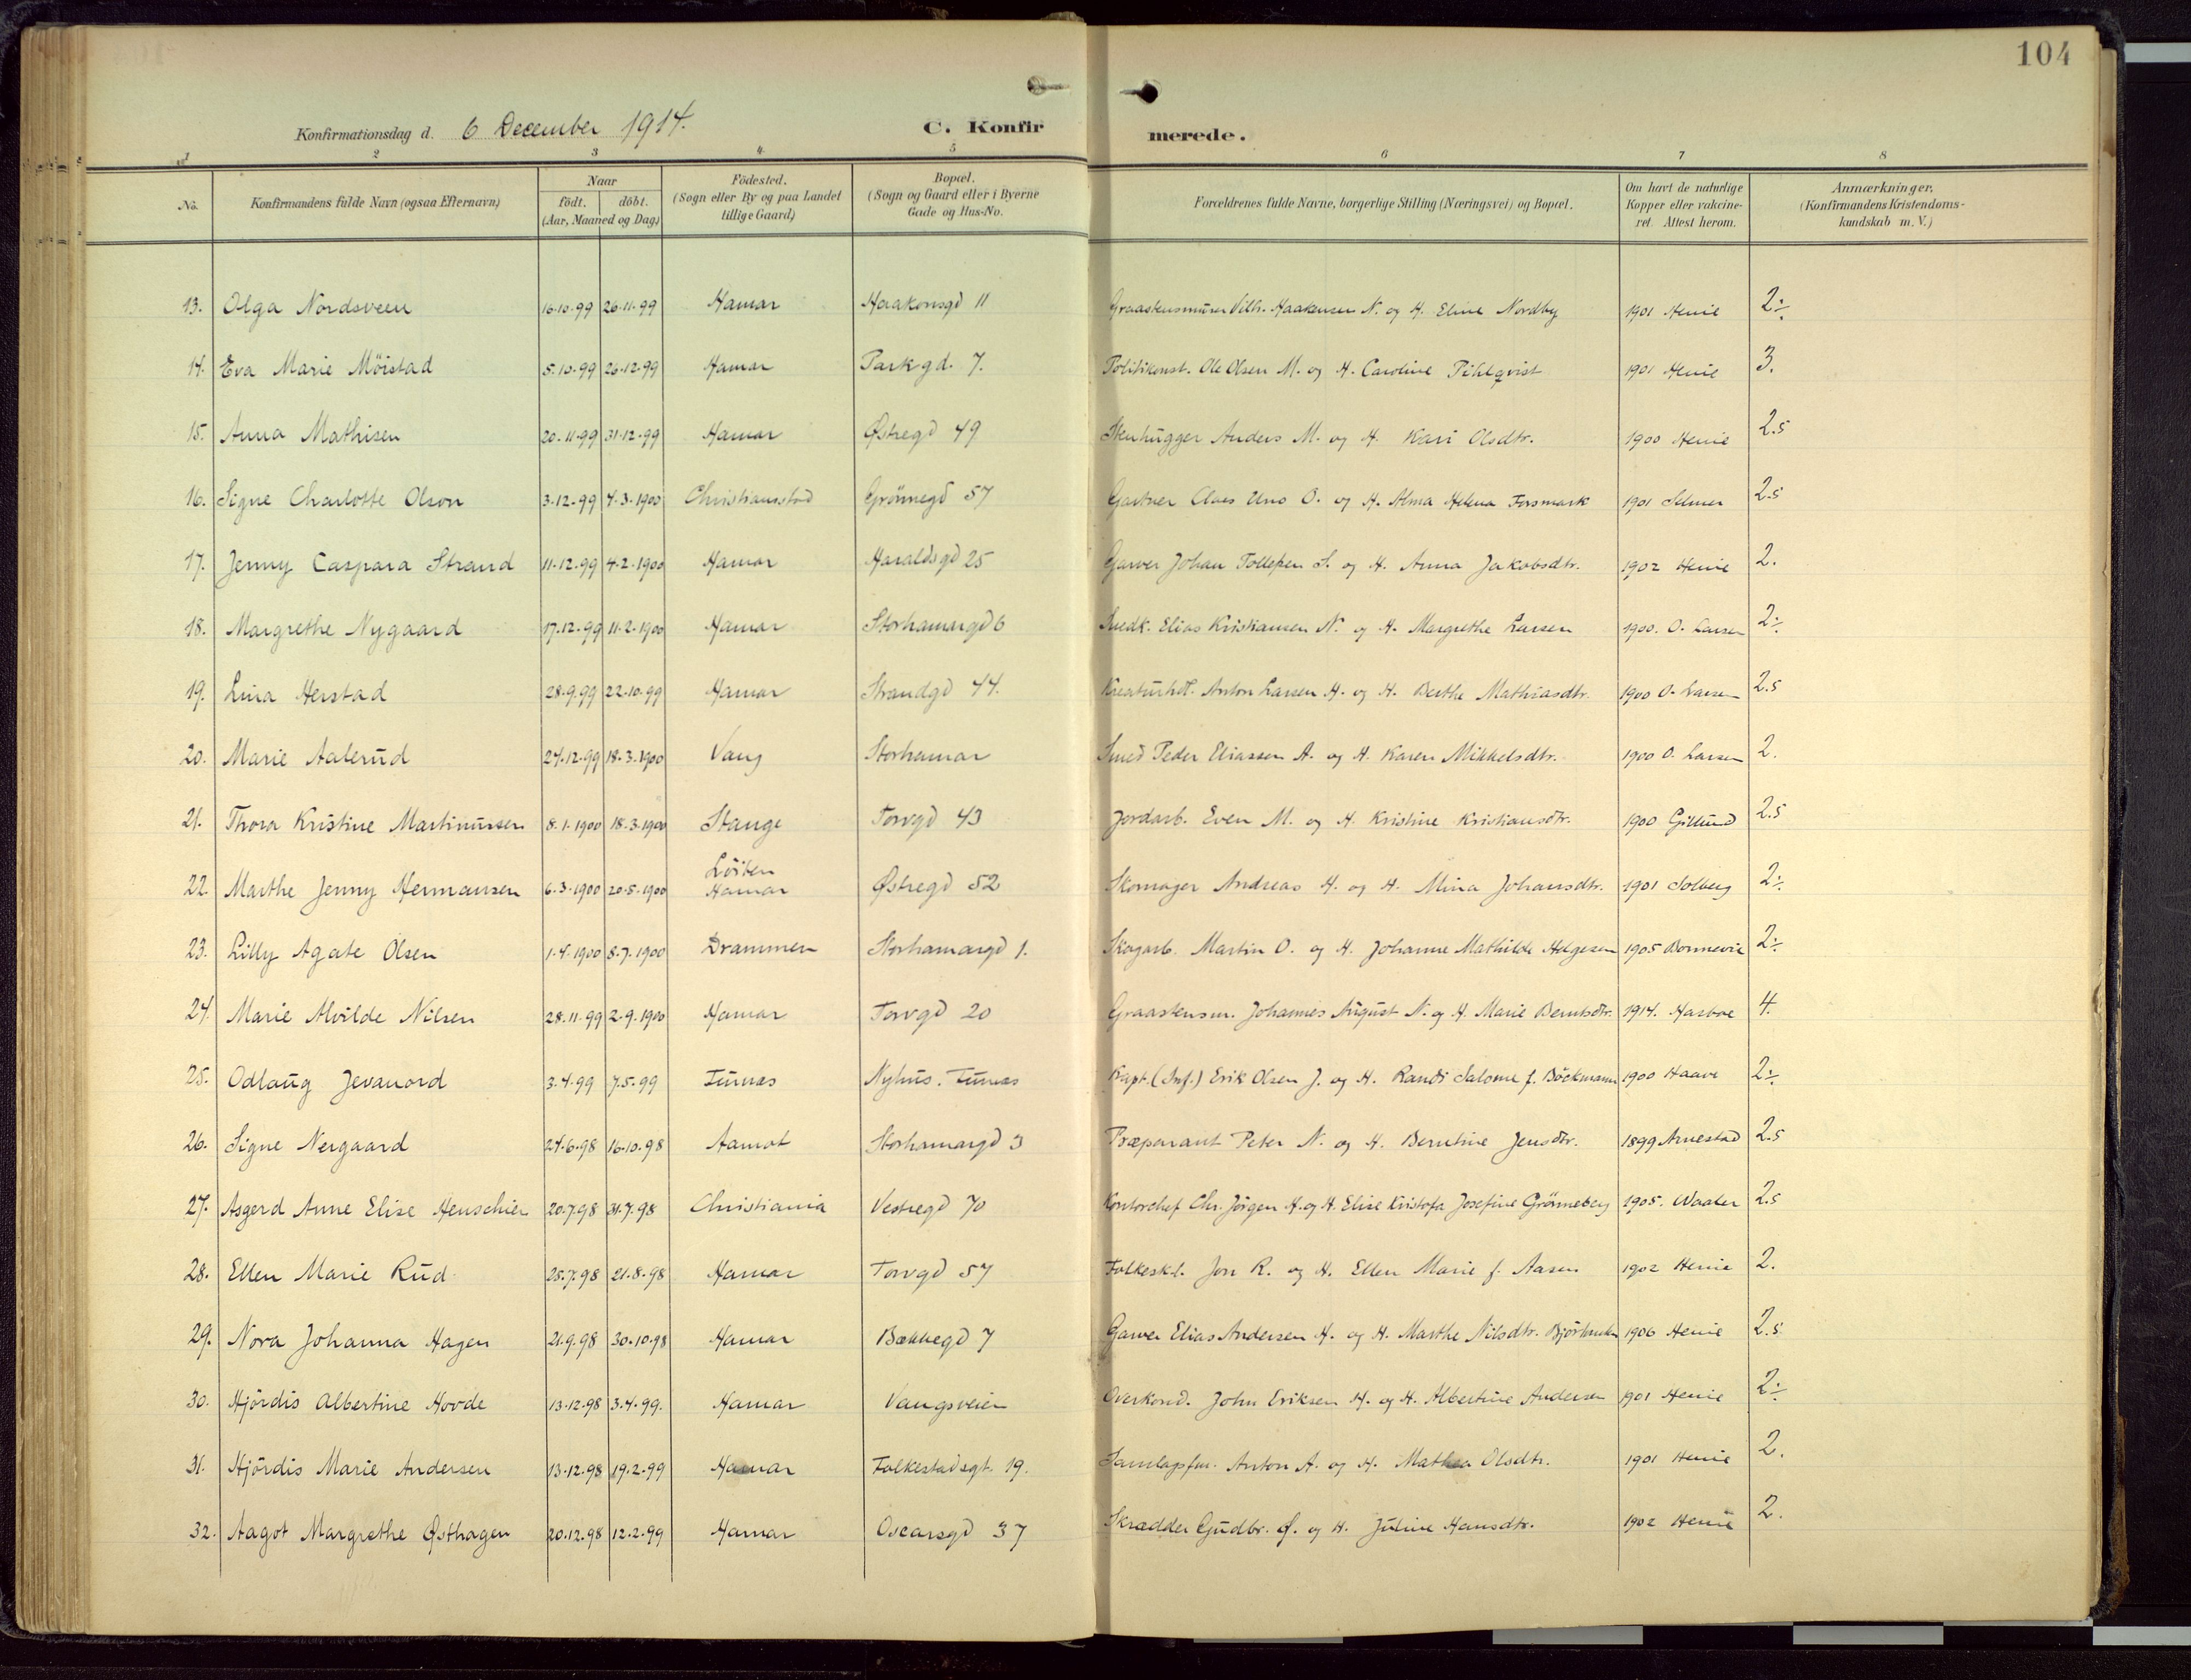 104
Konfirmationsdag d. 6 December 1914. C. Konfirmerede.
1 2 3 4 5 6 7 8
No. Konfirmandens fulde Navn (ogsaa Efternavn) Naar födt. döbt. (Aar, Maaned og Dag) Födested. (Sogn eller By og paa Landet tillige Gaard) Bopæl. (Sogn og Gaard eller i Byerne Gade og Hus-No. Forældrenes fulde Navne, borgerlige Stilling (Næringsvei) og Bopæl. Om havt de naturlige Kopper eller vakcineret. Attest herom. Anmærkninger. (Konfirmandens Kristendomskundskab m. V.)
13. Olga Nordsveen 16.10.99 26.11.99 Hamar Haakonsgd 11 Graastensmurer Vilh. Haakensen N. og H. Eline Nordby 1901 Henie 2÷
14. Eva Marie Möistad 5.10.99 26.12.99 Hamar Parkgd. 7. Politikonst. Ole Olsen M. og H. Caroline Pihlqvist 1901 Henie 3.
15. Anna Mathisen 20.11.99 31.12.99 Hamar Østregd 49 Stenhugger Anders M. og H. Kari Olsdtr. 1900 Henie 2.5
16. Signe Charlotte Olson 3.12.99 4.3.1900 Christiansstad Grönnegd 57 Gartner Claes Uno O. og H. Alma Helena Forsmark 1901 Selmer 2.5
17. Jenny Caspara Strand 11.12.99 4.2.1900 Hamar Haraldsgd 25 Garver Johan Tollefsen S. og H. Anna Jakobsdtr. 1902 Henie 2.
18. Margrethe Nygaard 17.12.99 11.2.1900 Hamar Storhamargd 6 Snedk. Elias Kristiansen N. og H. Margrethe Larsen 1900. O. Larsen 2÷
19. Lina Herstad 28.9.99 22.10.99 Hamar Strandgd 44. Kreaturhdl. Anton Larsen H. og H. Berthe Mathiasdtr. 1900 O. Larsen 2.5
20. Marie Aalerud 27.12.99 18.3.1900 Vang Storhamar Smed Peder Eliassen A. og H. Karen Mikkelsdtr. 1900 O. Larsen 2.
21. Thora Kristine Martinussen 8.1.1900 18.3.1900 Stange Torvgd 43 Jordarb. Even M. og H. Kristine Kristiansdtr. 1900 Gillund 2.5
22. Marthe Jenny Hermansen 6.3.1900 20.5.1900 Löiten Hamar Østregd 52 Skomager Andreas H. og H. Mina Johansdtr. 1901 Solberg 2÷
23. Lilly Agate Olsen 1.4.1900 8.7.1900 Drammen Storhamargd 1. Skogarb. Martin O. og H. Johanne Mathilde Helgesen 1905 Bonnevie 2÷
24. Marie Alvilde Nilsen 28.11.99 2.9.1900 Hamar Torvgd 20 Graastensm. Johannes August N. og H. Marie Berntsdtr. 1914. Aasboe 4.
25. Odlaug Jevanord 3.4.99 7.5.99 Furnes Nyhus. Furnes Kapt. (Inf.) Erik Olsen J. og H. Randi Salome f. Böckmann 1900 Haave 2÷
26. Signe Nergaard 24.6.98 16.10.98 Aamot Storhamargd 3 Præparant Peter N. og H. Berntine Jensdtr. 1899 Arnestad 2.5
27. Asgerd Anne Elise Henschien 20.7.98 31.7.98 Christiania Vestregd 70 Kontorchef Chr. Jörgen H. og H. Elise Kristofa Josefine Grönneberg 1905. Waaler 2.5
28. Ellen Marie Rud 25.7.98 21.8.98 Hamar Torvgd 57 Folkeskl. Jon R. og H. Ellen Marie f. Aasen 1902 Henie 2.
29. Nora Johanna Hagen 21.9.98 30.10.98 Hamar Bækkegd 7 Garver Elias Andersen H. og H. Marthe Nilsdtr. 1906 Henie 2.5
30. Hjördis Albertine Hovde 13.12.98 3.4.99. Hamar Vangsveien Overkond. John Eriksen H. og H. Albertine Andersen 1901 Henie 2÷
31. Hjördis Marie Andersen 13.12.98 19.2.99 Hamar Folkestadsgt. 19. Samlagsfm. Anton A. og H. Mathea Olsdtr. 1901 Henie 2.
32. Aagot Margrethe Østhagen 20.12.98 12.2.99 Hamar Oscarsgd 37 Skrædder Gudbr. Ø. og H. Juline Hansdtr. 1902 Henie 2.